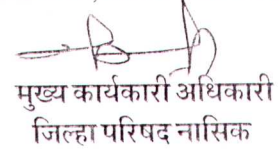 मुख्य कार्यकारी अधिकारी
जिल्हा परिषद नासिक